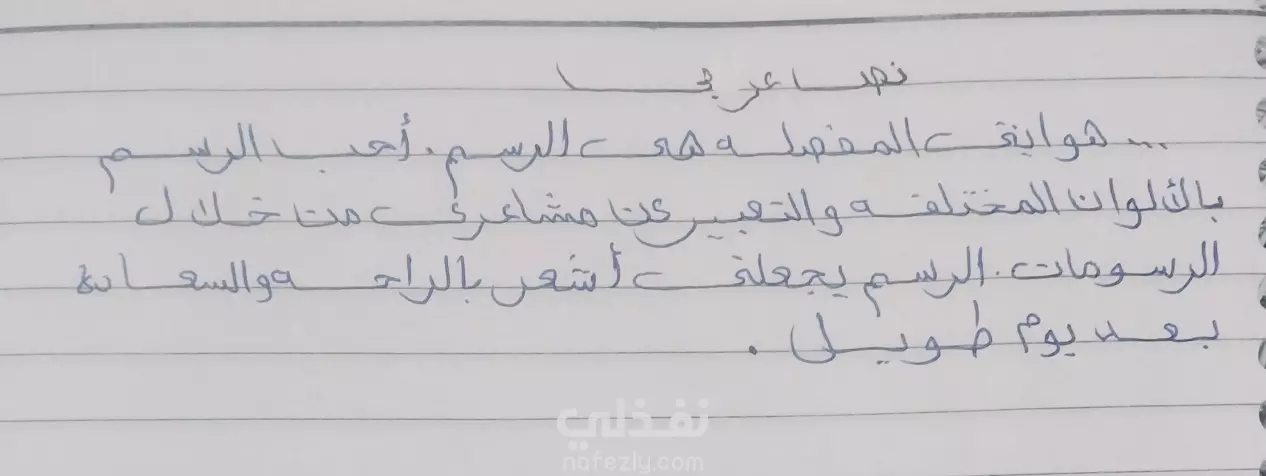 نص عربي
... هوايتي المفضله هي الرسم. أحب الرسم
بالألوان المختلفه والتعبير عن مشاعري من خلال
الرسومات. الرسم يجعلني أشعر بالراحه والسعادة
بعد يوم طويل.
نفذلي
nafezly.com